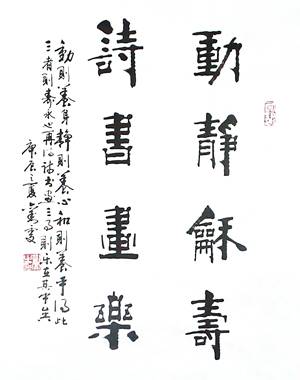 動靜龢壽
詩書畫樂
動則養身靜則養心和則養平得此
三者則壽永也再得詩書畫三局則樂在其中矣
庚辰之夏